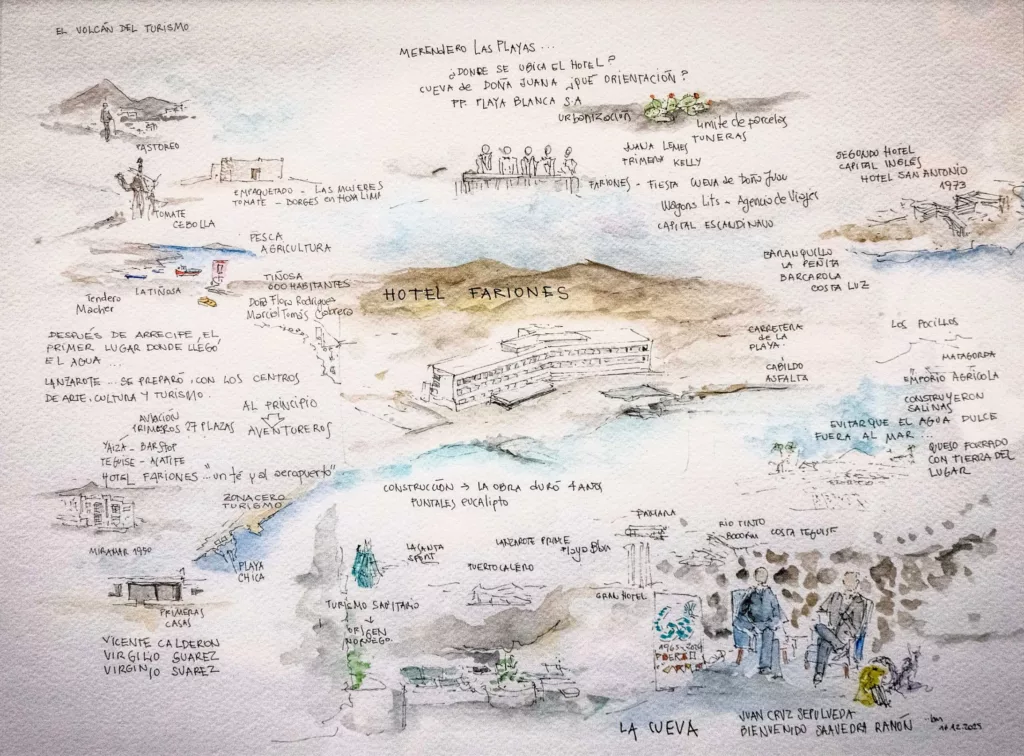 EL VOLCÁN DEL TURISMO
MERENDERO LAS PLAYAS...
¿DONDE SE UBICA EL HOTEL?
CUEVA de DOÑA JUANA ¿QUÉ ORIENTACIÓN?
PP. PLAYA BLANCA S.A
URBANIZACIÓN
Límite de parcelas
TUNERAS
JUANA LEMES
PRIMERA KELLY
PASTOREO
TOMATE
CEBOLLA
EMPAQUETADO - LAS MUJERES
TOMATE - BORGES en
FARIONES - FIESTA CUEVA de Doña Juana
Wagons Lits - Agencia de Viajes
CAPITAL ESCANDINAVO
SEGUNDO HOTEL
CAPITAL INGLES
HOTEL SAN ANTONIO
1973
PESCA
AGRICULTURA
LA TIÑOSA
Tendero
Macher
TIÑOSA
600 HABITANTES
Doña Flora Rodríguez
Marcial Tomás Cabrera
HOTEL FARIONES
BARANQUILLO
LA PEÑITA
BARCAROLA
COSTA LUZ
DESPUÉS DE ARRECIFE, EL
PRIMER LUGAR DONDE LLEGÓ
EL AGUA...
LANZAROTE... SE PREPARÓ, CON LOS CENTROS
DE ARTE, CULTURA Y TURISMO.
CARRETERA
de LA
PLAYA.
CABILDO
ASFALTA
LOS POCILLOS
MATAGORDA
EMPORIO AGRÍCOLA
CONSTRUYERON
SALINAS
EVITAR QUE EL AGUA DULCE
FUERA AL MAR...
QUESO FORRADO
CON TIERRA DEL
LUGAR
AL PRINCIPIO
AVENTUREROS
AVIACIÓN
PRIMEROS 27 PLAZAS
YAIZA - BAR STOP
TEGUISE - ACATIFE
HOTEL FARIONES... "un té y al aeropuerto"
ZONACERO
TURISMO
MIRAMAR 1950
PLAYA
CHICA
PRIMERAS
CASAS
VICENTE CALDERON
VIRGILIO SUAREZ
VIRGINIO SUAREZ
CONSTRUCCIÓN → LA OBRA DURÓ 4 AÑOS
PUNTALES eucalipto
LA SANTA
SPORT
LANZAROTE PRIME
Playa Blan
PUERTO CALERO
GRAN HOTEL
RIO TINTO
COSTA TEGUISE
TURISMO SANITARIO
ORIGEN
NORUEGO
LA CUEVA
JUAN CRUZ SEPULVEDA
BIENVENIDO SAAVEDRA RAMÓN